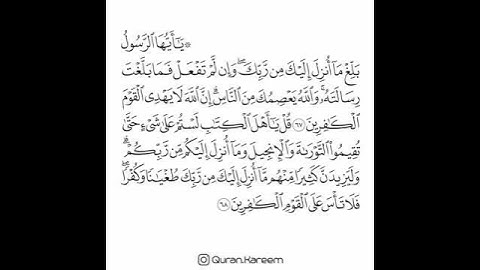 ۞ يَٰٓأَيُّهَا ٱلرَّسُولُ
بَلِّغْ مَآ أُنزِلَ إِلَيْكَ مِن رَّبِّكَۖ وَإِن لَّمْ تَفْعَلْ فَمَا بَلَّغْتَ
رِسَالَتَهُۥۚ وَٱللَّهُ يَعْصِمُكَ مِنَ ٱلنَّاسِۗ إِنَّ ٱللَّهَ لَا يَهْدِى ٱلْقَوْمَ
ٱلْكَٰفِرِينَ ٦٧ قُلْ يَٰٓأَهْلَ ٱلْكِتَٰبِ لَسْتُمْ عَلَىٰ شَىْءٍ حَتَّىٰ
تُقِيمُوا۟ ٱلتَّوْرَىٰةَ وَٱلْإِنجِيلَ وَمَآ أُنزِلَ إِلَيْكُم مِّن رَّبِّكُمْۗ
وَلَيَزِيدَنَّ كَثِيرًا مِّنْهُم مَّآ أُنزِلَ إِلَيْكَ مِن رَّبِّكَ طُغْيَٰنًا وَكُفْرًاۖ
فَلَا تَأْسَ عَلَى ٱلْقَوْمِ ٱلْكَٰفِرِينَ ٦٨
Quran.Kareem